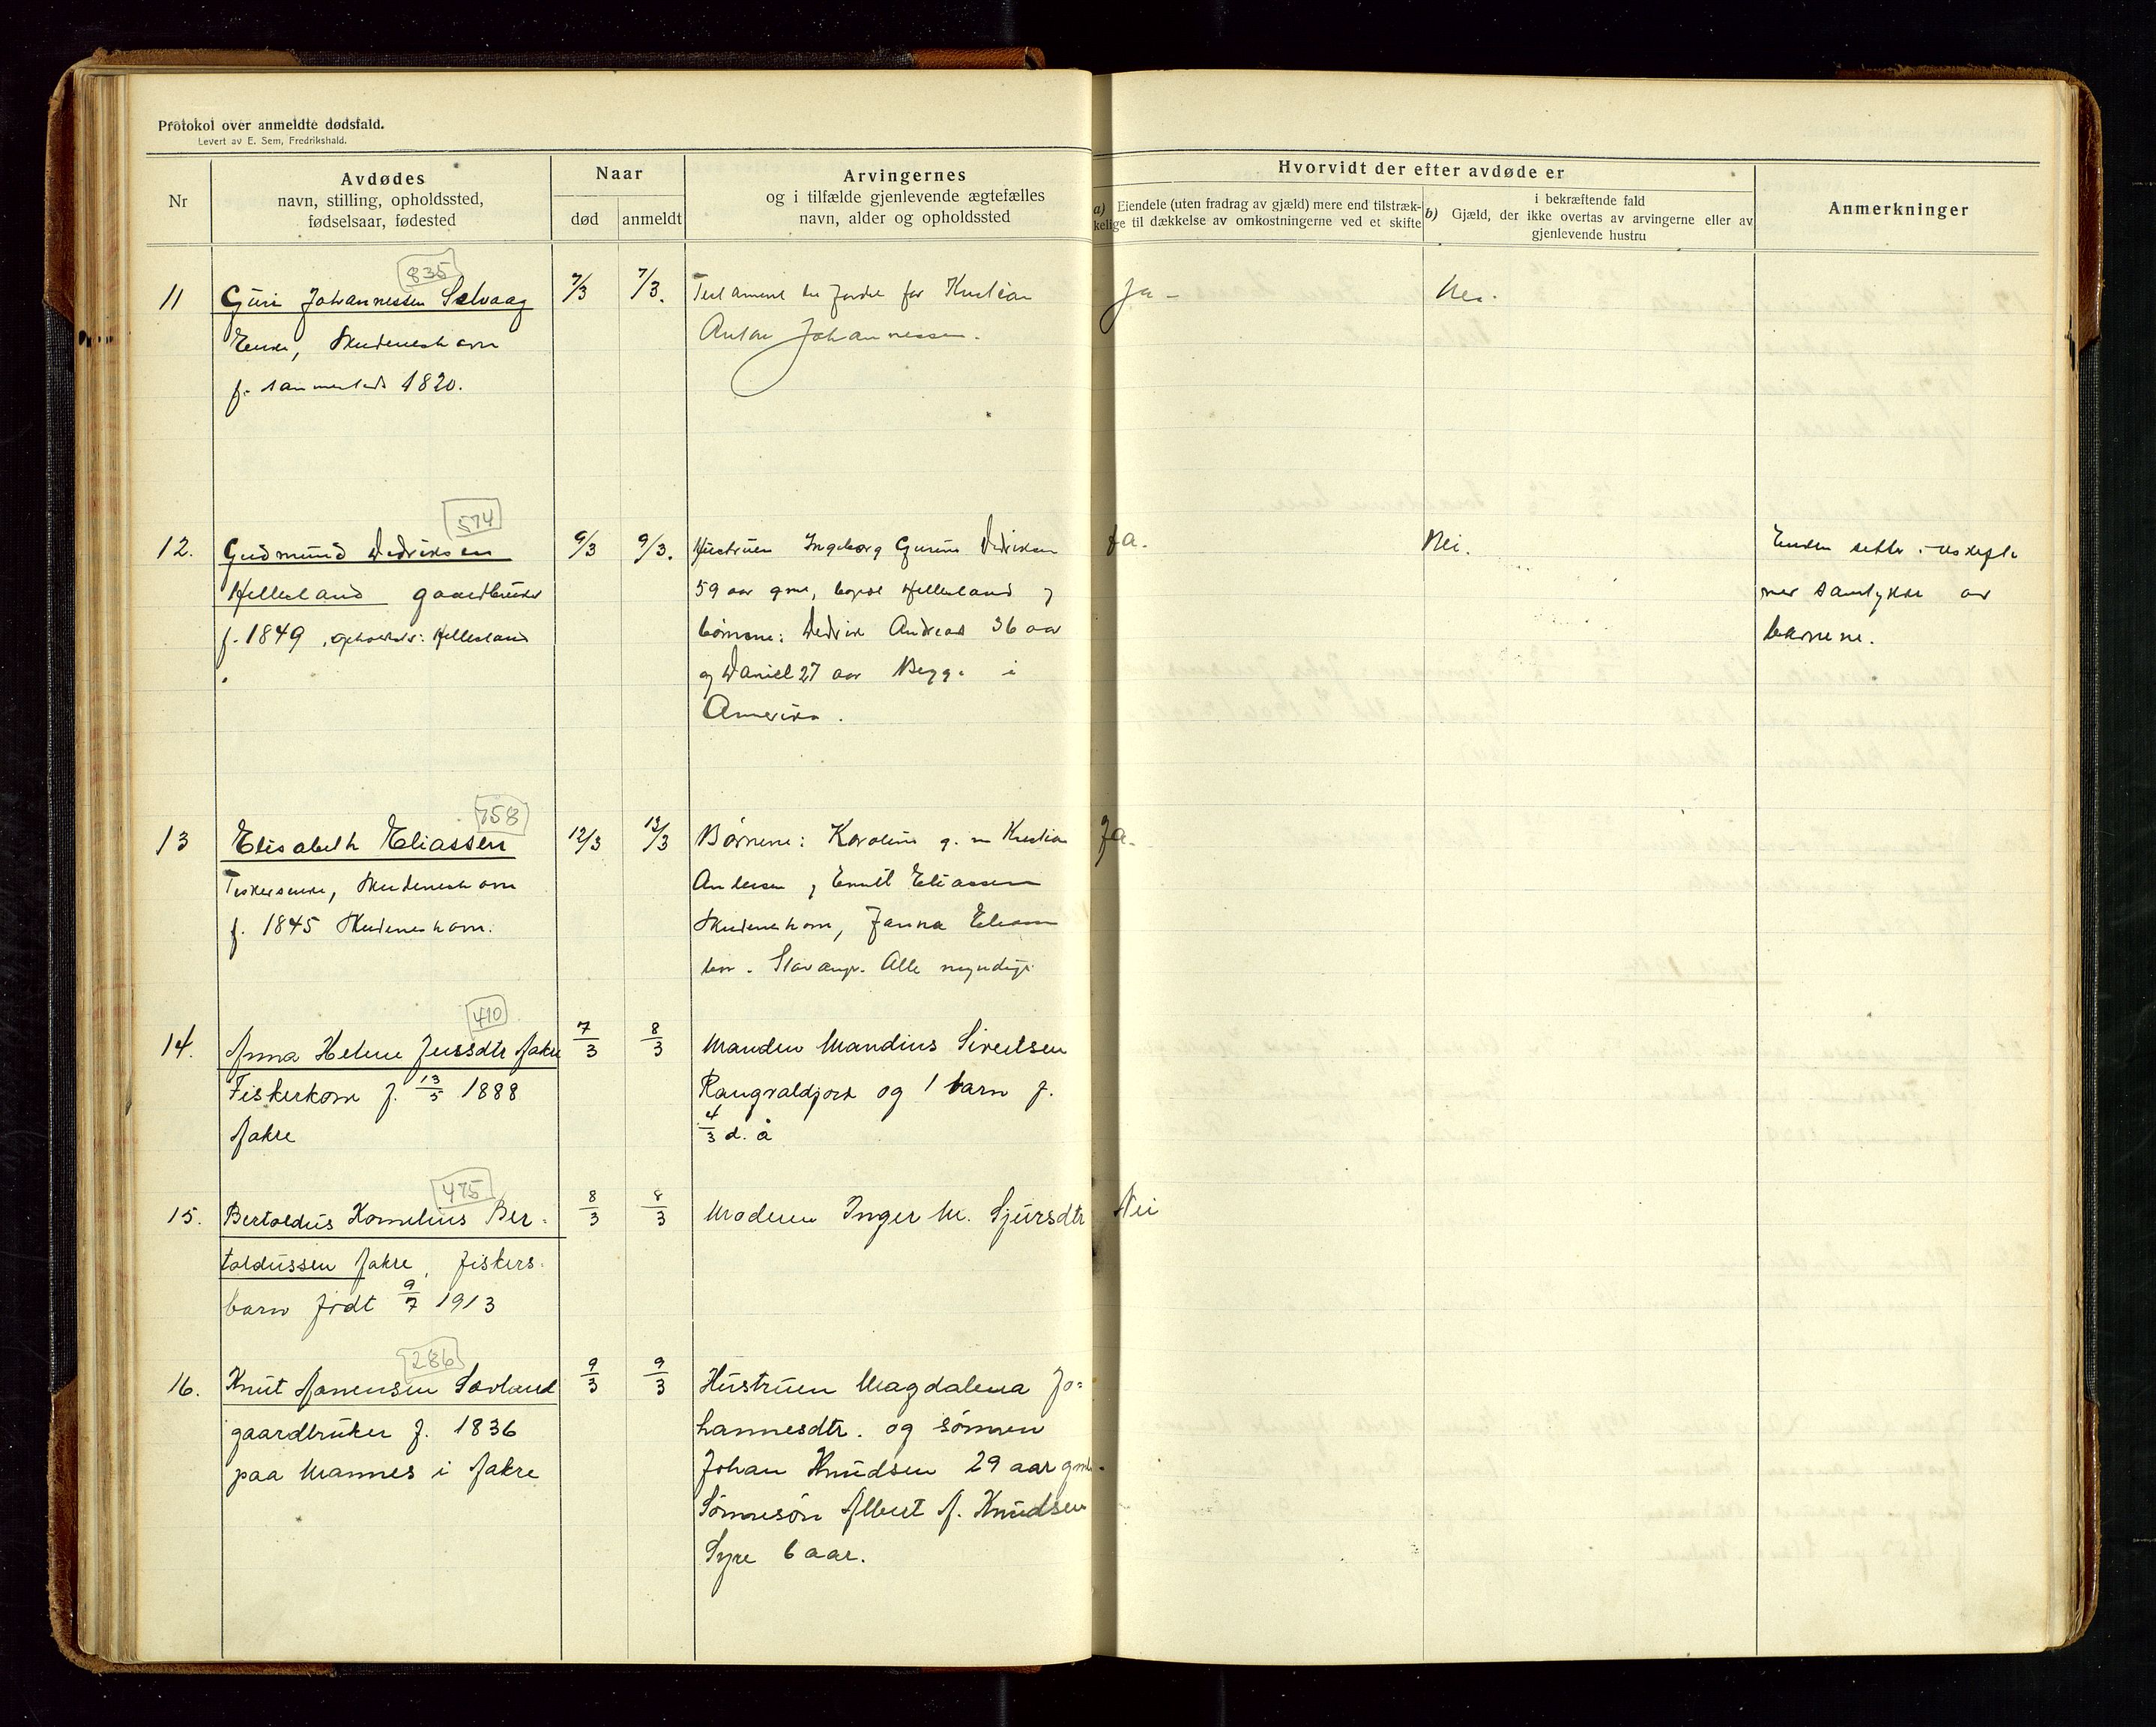 Protokol over anmeldte dødsfald.
Levert av E. Sem, Fredrikshald.
Nr
Avdødes
navn, stilling, opholdssted,
fødselsaar, fødested
Naar
død
anmeldt
Arvingernes
og i tilfælde gjenlevende ægtefælles
navn, alder og opholdssted
Hvorvidt der efter avdøde er
a) Eiendele (uten fradrag av gjæld) mere end tilstræk-
kelige til dækkelse av omkostningerne ved et skifte
b) Gjæld, der i bekræftende fald
ikke overtas av arvingerne eller av
gjenlevende hustru
Anmerkninger
835
11 Guri Johannessen Selvaag 7/3 7/3. Testament til fordel for Kristian Ja- Nei.
Enke, Skudeneshavn Anton Johannessen.
f. sammesteds 1820.
574
12. Gudmund Dedriksen 9/3 9/3. Hustruen Ingeborg Gurine Dedriksen Ja. Nei. Enken sitter i uskifte
Hellesland gaardbruker 59 aar gml, bopæl Hellesland og med samtykke av
f. 1849, opholdst: Hellesland børnene: Dedrik Andreas 36 aar barnene.
og Daniel 27 aar Begge i
Amerika.
758
13 Elisabeth Eliassen 12/3 13/3 Børnene: Karoline g. m Kristian Ja.
Fiskerenke, Skudeneshavn Andersen og Emil Eliassen
f. 1845 Skudeneshavn. Skudeneshavn, Janna Eliassen
Stavanger. Alle myndige
410
14. Anna Helene Jensdtr Aakre 7/3 8/3 Manden Mandius Sivertsen
Fiskerkone f. 13/5 1888 Rangvaldjord og 1 barn f.
Aakre 4/3 d. å
475
15. Bertoldus Kornelius Ber- 8/3 8/3 Moderen Inger M. Sjursdtr Nei
toldussen Aakre, fiskers-
barn født 9/7 1913
286
16. Knut Aanensen Sævland 9/3 9/3 Hustruen Magdalena Jo-
gaardbruker f. 1836 hannesdtr. og sønnen
paa Mannes i Aakre Johan Knudsen 29 aar gml.
Sønnesøn Albert A. Knudsen
Syre 6 aar.